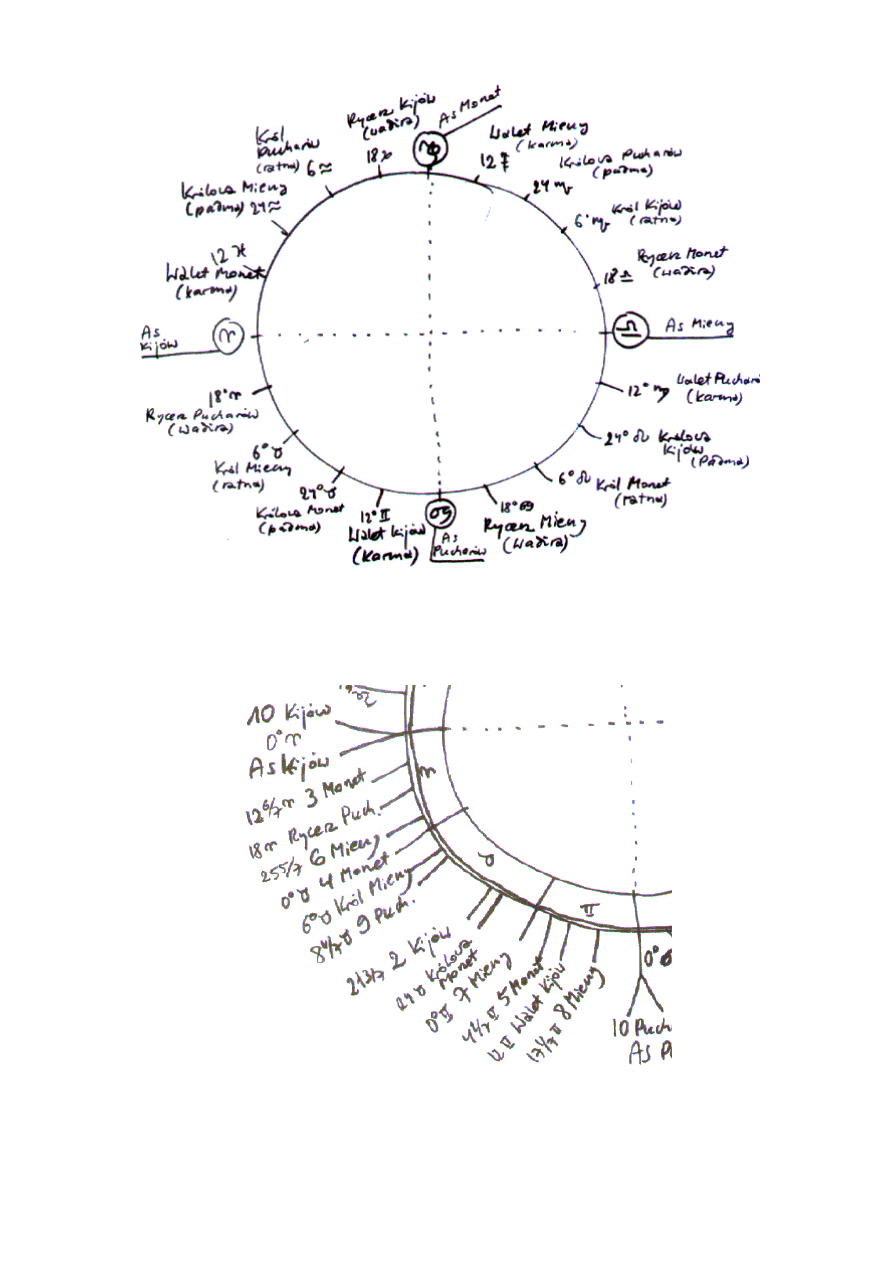 Rycerz Kijów
(wadżra)
18 ♑
♑
As Monet
Walet Mieczy
(karma)
12 ♐
Królova Pucharów
(padma)
24 ♏
6° ♏ Król Kijów
(ratna)
Rycerz Monet
18 ♎ (wadżra)
♎ As Mieczy
12° ♍ Walet Puchar
(karma)
24° ♌ Królova
Kijów
(padma)
6° ♌ Król Monet
(ratna)
18° ♋
Rycerz Mieczy
(wadżra)
♋
As
Pucharów
12° ♊
Walet Kijów
(karma)
24° ♉
Królova Monet
(padma)
6° ♉
Król Mieczy
(ratna)
18° ♈
Rycerz Pucharów
(wadżra)
As
Kijów
♈
12 ♓
Walet Monet
(karma)
Królova Mieczy
(padma) 24 ♒
Król
Pucharów
(ratna) 6 ♒
10 Kijów
0° ♈
As Kijów
12 6/7 ♈ 3 Monet
18 ♈ Rycerz Puch.
25 5/7 6 Mieczy
0° ♉ 4 Monet
6° ♉ Król Mieczy
8 4/7 ♉ 9 Puch.
21 3/7 2 Kijów
24 ♉ Królova
Monet
0° ♊ 7 Mieczy
4 2/7 ♊ 5 Monet
12 ♊ Walet Kijów
17 1/7 ♊ 8 Mieczy
♈
♉
♊
0° ♋
10 Puch
As P